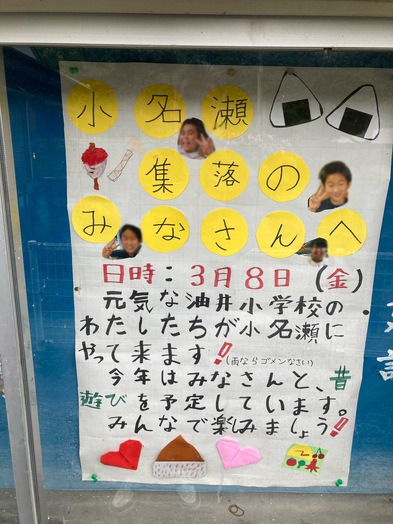 小名瀬
集落の
みなさんへ
日時：3月8日（金）
元気な油井小学校の
わたしたちが小名瀬に
やって来ます！！(雨ならゴメンなさい)
今年はみなさんと、昔
遊びを予定しています。
みんなで楽しみましょう！！